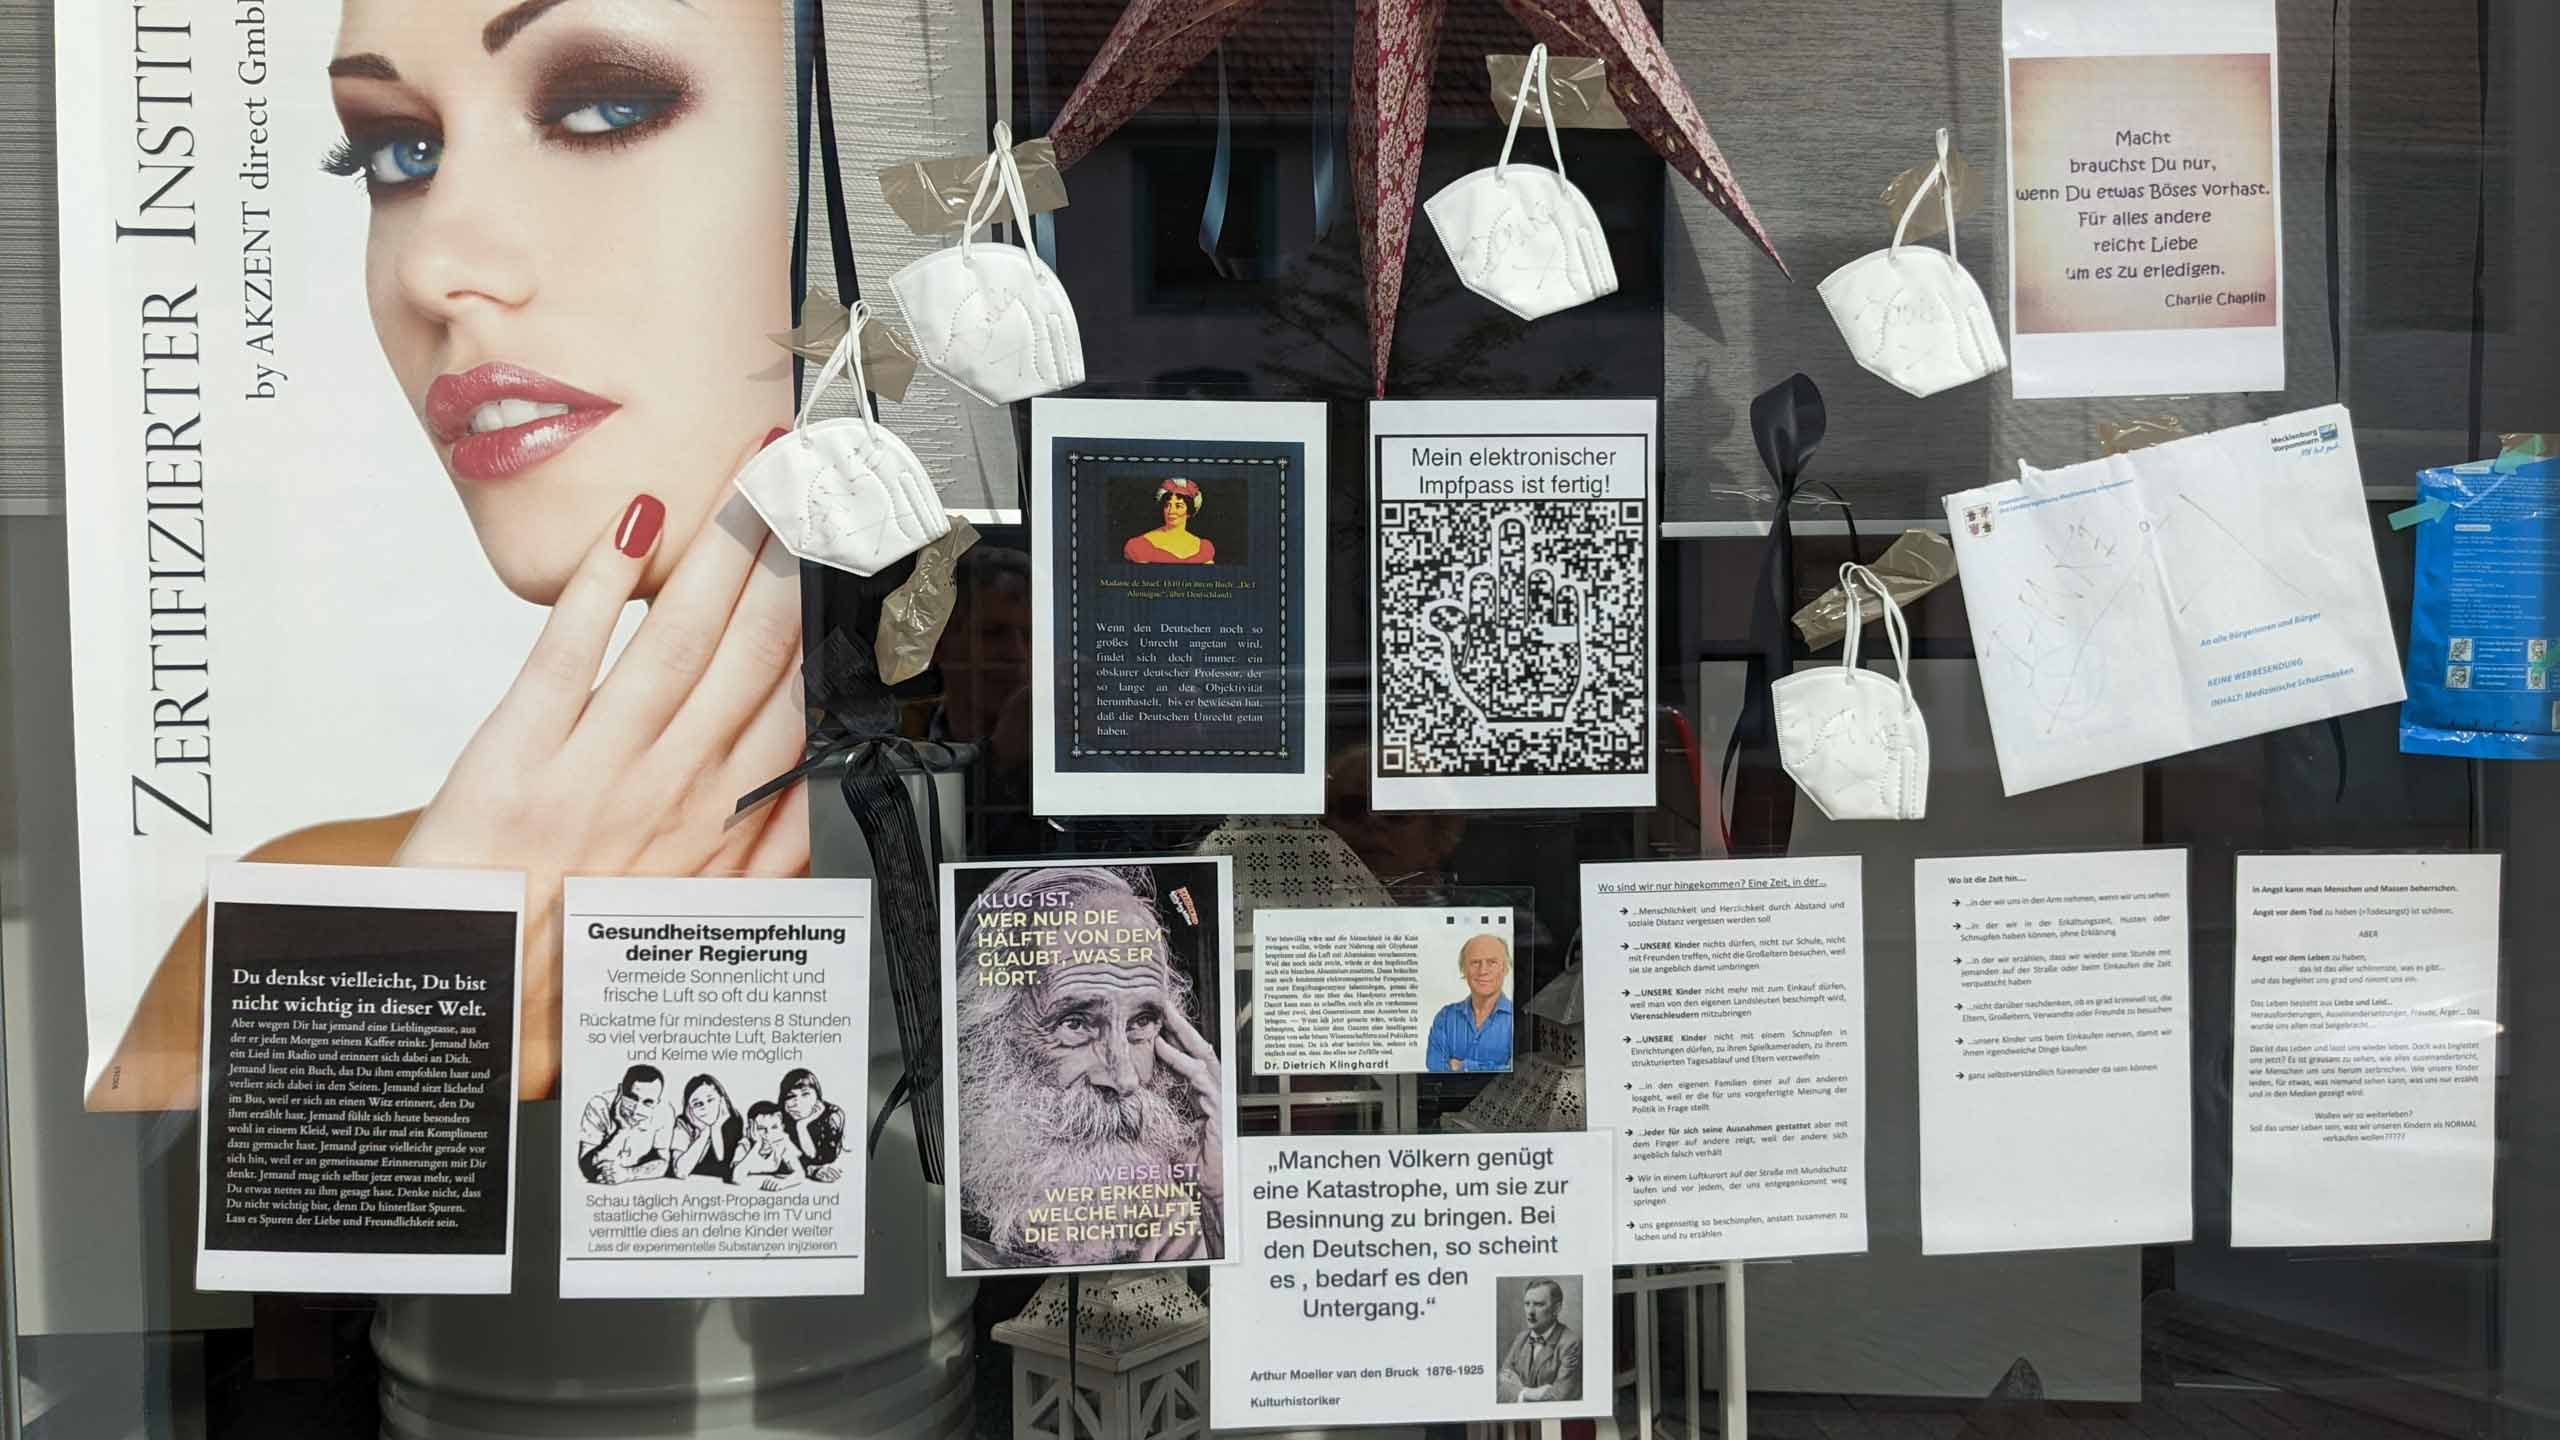 ZERTIFIZIERTER INSTIT
by AKZENT direct Gmb
Macht
brauchst Du nur,
wenn Du etwas Böses vorhast.
Für alles andere
reicht Liebe
um es zu erledigen.
Charlie Chaplin
Madame de Stael, 1810 (in ihrem Buch: „De l
Alemagne“, über Deutschland)
Wenn den Deutschen noch so
großes Unrecht angetan wird,
findet sich doch immer ein
obskurer deutscher Professor, der
so lange an der Objektivität
herumbastelt, bis er bewiesen hat,
daß die Deutschen Unrecht getan
haben.
Mein elektronischer
Impfpass ist fertig!
Mecklenburg
Vorpommern
MV tut gut.
An alle Bürgerinnen und Bürger
KEINE WERBESENDUNG
INHALT: Medizinische Schutzmasken
Du denkst vielleicht, Du bist
nicht wichtig in dieser Welt.
Aber wegen Dir hat jemand eine Lieblingstasse, aus
der er jeden Morgen seinen Kaffee trinkt. Jemand hört
ein Lied im Radio und erinnert sich dabei an Dich.
Jemand liest ein Buch, das Du ihm empfohlen hast und
verliert sich dabei in den Seiten. Jemand sitzt lächelnd
im Bus, weil er sich an einen Witz erinnert, den Du
ihm erzählt hast. Jemand fühlt sich heute besonders
wohl in einem Kleid, weil Du ihr mal ein Kompliment
dazu gemacht hast. Jemand grinst vielleicht gerade vor
sich hin, weil er an gemeinsame Erinnerungen mit Dir
denkt. Jemand mag sich selbst jetzt etwas mehr, weil
Du etwas nettes zu ihm gesagt hast. Denke nicht, dass
Du nicht wichtig bist, denn Du hinterlässt Spuren.
Lass es Spuren der Liebe und Freundlichkeit sein.
Gesundheitsempfehlung
deiner Regierung
Vermeide Sonnenlicht und
frische Luft so oft du kannst
Rückatme für mindestens 8 Stunden
so viel verbrauchte Luft, Bakterien
und Keime wie möglich
Schau täglich Angst-Propaganda und
staatliche Gehirnwäsche im TV und
vermittle dies an deine Kinder weiter
Lass dir experimentelle Substanzen injizieren
KLUG IST,
WER NUR DIE
HÄLFTE VON DEM
GLAUBT, WAS ER
HÖRT.
WEISE IST,
WER ERKENNT,
WELCHE HÄLFTE
DIE RICHTIGE IST.
Dr. Dietrich Klinghardt
„Manchen Völkern genügt
eine Katastrophe, um sie zur
Besinnung zu bringen. Bei
den Deutschen, so scheint
es , bedarf es den
Untergang.“
Arthur Moeller van den Bruck 1876-1925
Kulturhistoriker
Wo sind wir nur hingekommen? Eine Zeit, in der...
➔ ...Menschlichkeit und Herzlichkeit durch Abstand und
soziale Distanz vergessen werden soll
➔ ...UNSERE Kinder nichts dürfen, nicht zur Schule, nicht
mit Freunden treffen, nicht die Großeltern besuchen, weil
sie sie angeblich damit umbringen
➔ ...UNSERE Kinder nicht mehr mit zum Einkauf dürfen,
weil man von den eigenen Landsleuten beschimpft wird,
Vierenschleudern mitzubringen
➔ ...UNSERE Kinder nicht mit einem Schnupfen in
Einrichtungen dürfen, zu ihren Spielkameraden, zu ihrem
strukturierten Tagesablauf und Eltern verzweifeln
➔ ...in den eigenen Familien einer auf den anderen
losgeht, weil er die für uns vorgefertigte Meinung der
Politik in Frage stellt
➔ ...Jeder für sich seine Ausnahmen gestattet aber mit
dem Finger auf andere zeigt, weil der andere sich
angeblich falsch verhält
➔ Wir in einem Luftkurort auf der Straße mit Mundschutz
laufen und vor jedem, der uns entgegenkommt weg
springen
➔ uns gegenseitig so beschimpfen, anstatt zusammen zu
lachen und zu erzählen
Wo ist die Zeit hin....
➔ ...in der wir uns in den Arm nehmen, wenn wir uns sehen
➔ ...in der wir in der Erkältungszeit, Husten oder
Schnupfen haben können, ohne Erklärung
➔ ...in der wir erzählen, dass wir wieder eine Stunde mit
jemanden auf der Straße oder beim Einkaufen die Zeit
verquatscht haben
➔ ...nicht darüber nachdenken, ob es grad kriminell ist, die
Eltern, Großeltern, Verwandte oder Freunde zu besuchen
➔ ...unsere Kinder uns beim Einkaufen nerven, damit wir
ihnen irgendwelche Dinge kaufen
➔ ganz selbstverständlich füreinander da sein können
In Angst kann man Menschen und Massen beherrschen.
Angst vor dem Tod zu haben (=Todesangst) ist schlimm,
ABER
Angst vor dem Leben zu haben,
das ist das aller schlimmste, was es gibt...
und das begleitet uns grad und nimmt uns ein.
Das Leben besteht aus Liebe und Leid...
Herausforderungen, Auseinandersetzungen, Freude, Ärger... Das
wurde uns allen mal beigebracht...
Das ist das Leben und lässt uns wieder leben. Doch was begleitet
uns jetzt? Es ist grausam zu sehen, wie alles auseinanderbricht,
wie Menschen um uns herum zerbrechen. Wie unsere Kinder
leiden, für etwas, was niemand sehen kann, was uns nur erzählt
und in den Medien gezeigt wird.
Wollen wir so weiterleben?
Soll das unser Leben sein, was wir unseren Kindern als NORMAL
verkaufen wollen?????